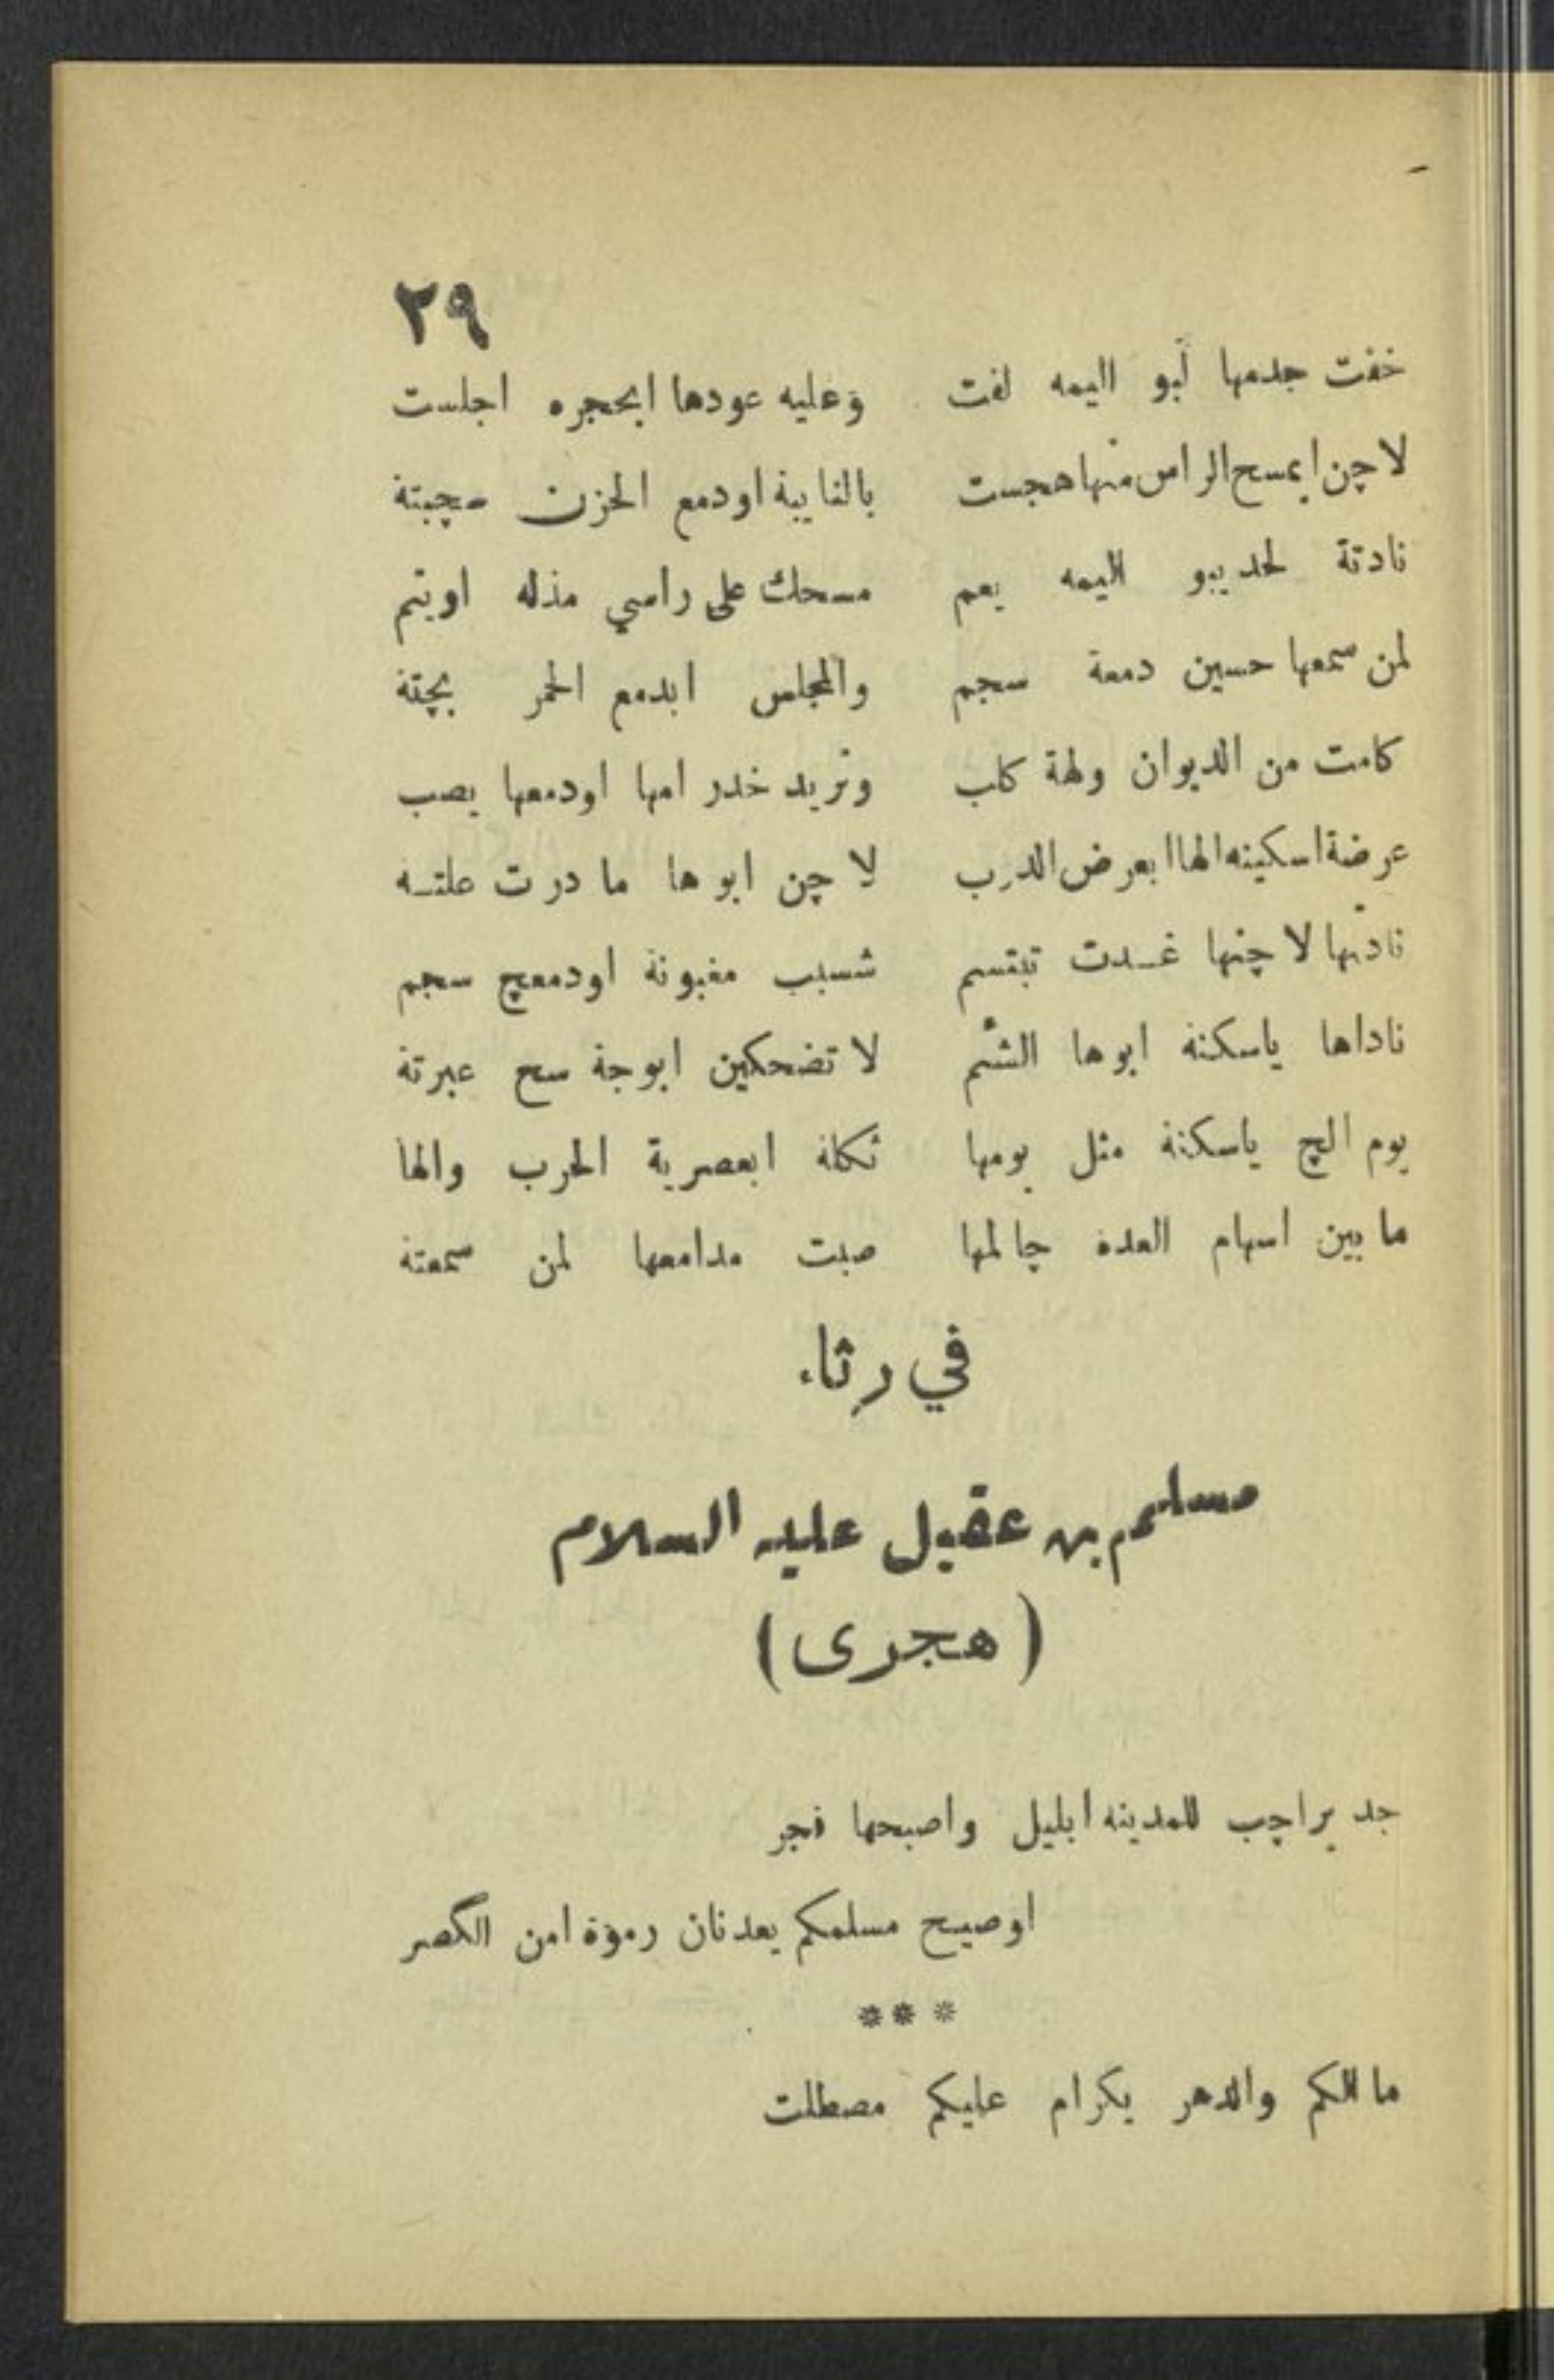 ٢٩
خفت جدمها لبو اليمه لفت وعليه عودها ابحجره اجلست
لاچن ايمسح الراس منها هجست بالنايبة اودمع الحزن مچبتة
نادتة لحد يبو اليمه يعم مسحك على راسي مذله اويتم
لمن سمعها حسين دمعة سجم والمجلس ابدمع الحمر بچتة
كامت من الديوان ولهة كلب وتريد خدر امها اودمعها يصب
عرضة اسكينه الها ابعرض الدرب لاچن ابوها ما درت علتـه
نادتها لاچنها غـدت تبتسم شسبب مغبونة اودمعچ سجم
ناداها ياسكنة ابوها الشم لا تضحكين ابوجة سح عبرتة
يوم الچ ياسكنة مثل يومها ثكلة ابعصرية الحرب والها
ما بين اسهام العده چالمها صبت مدامعها لمن سمعتة
في رثاء
مسلم بن عقيل عليه السلام
( هجرى )
جد يراچب للمدينه ابليل واصبحها فجر
اوصيح مسلمكم يعدنان رموة امن الگصر
***
ما الكم والدهر يكرام عليكم مصطلت